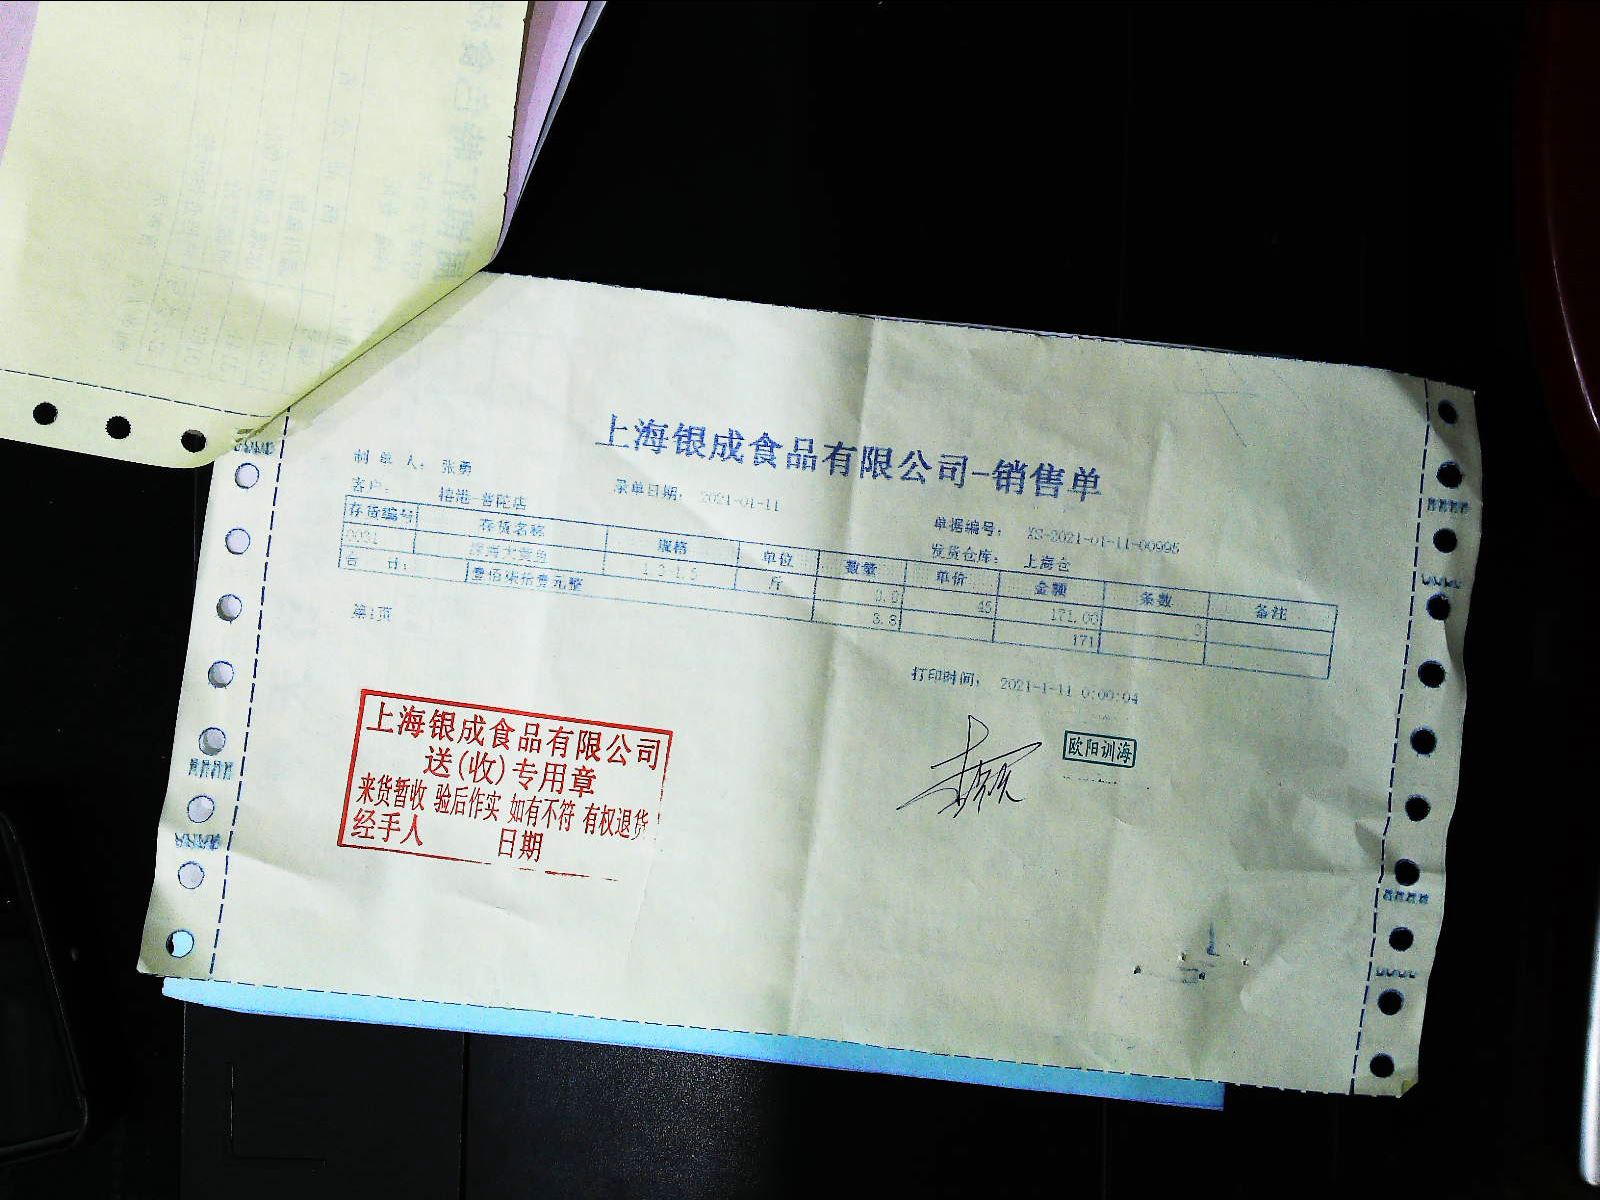 上海银成食品有限公司-销售单
制 单 人: 张勇
客户: 桔港-普陀店
录单日期: 2021-01-11
单据编号: XS-2021-01-11-00995
发货仓库: 上海仓
存货编号 存货名称 规格 单位 数量 单价 金额 条数 备注
0031 深海大黄鱼 1.3-1.5 斤 3.8 45 171.00 3
合 计: 壹佰柒拾壹元整 3.8 171
第1页
打印时间: 2021-1-11 0:00:04
上海银成食品有限公司
送(收)专用章
来货暂收 验后作实 如有不符 有权退货!
经手人 日期
欧阳训海